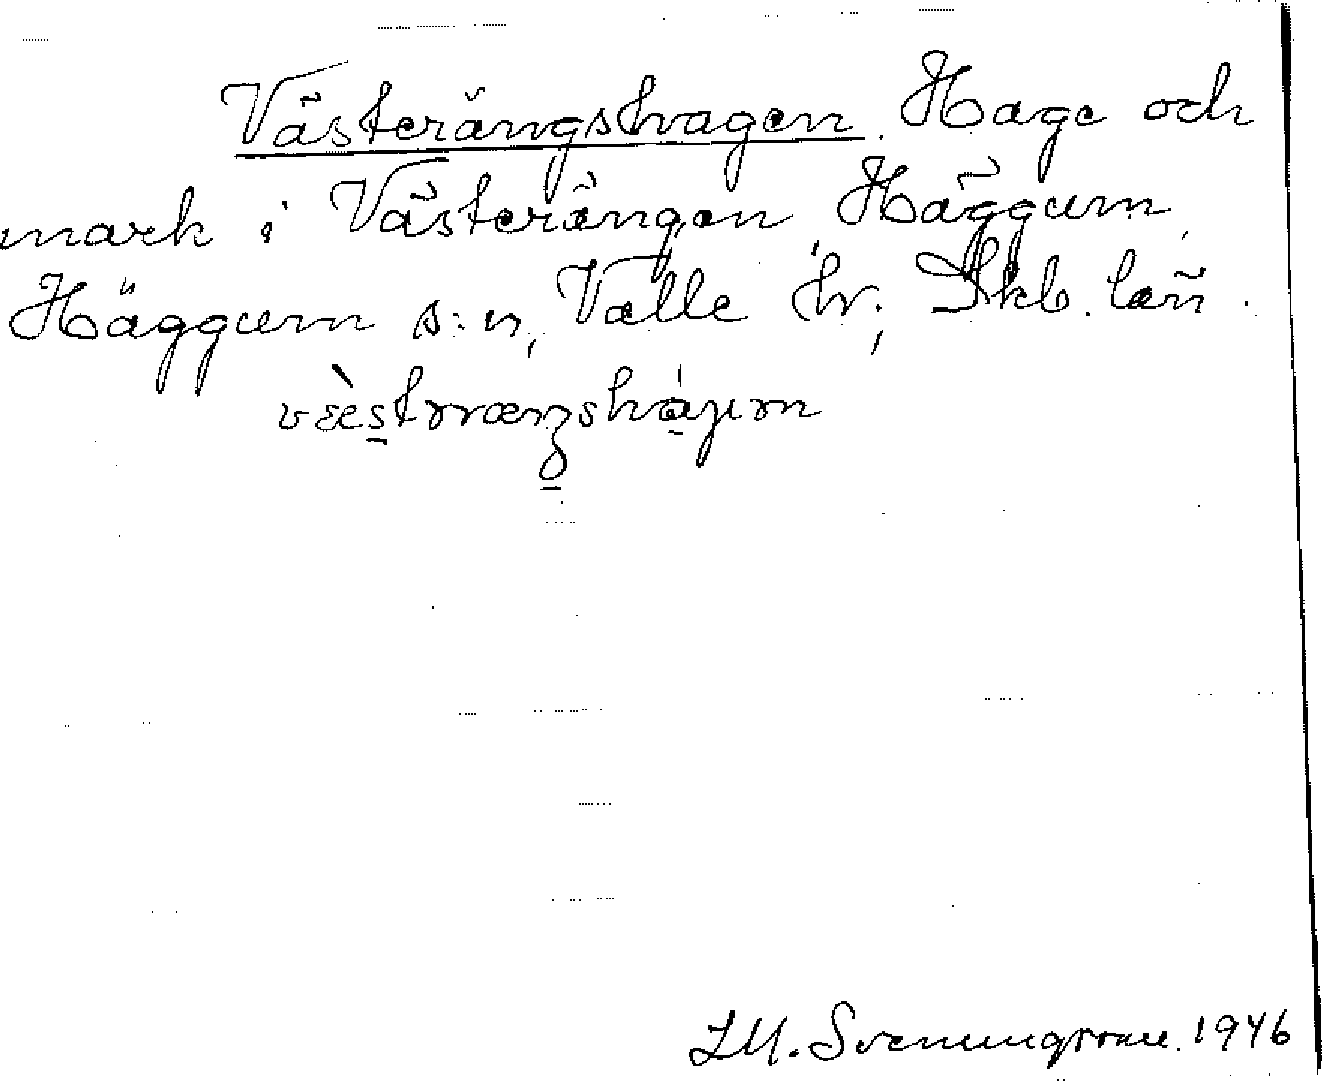 Västerängshagen. Hage och
mark i Västerängen Häggum,
Häggum s:n, Valle hr, Skb. län.
J.M. Svenungsson. 1946